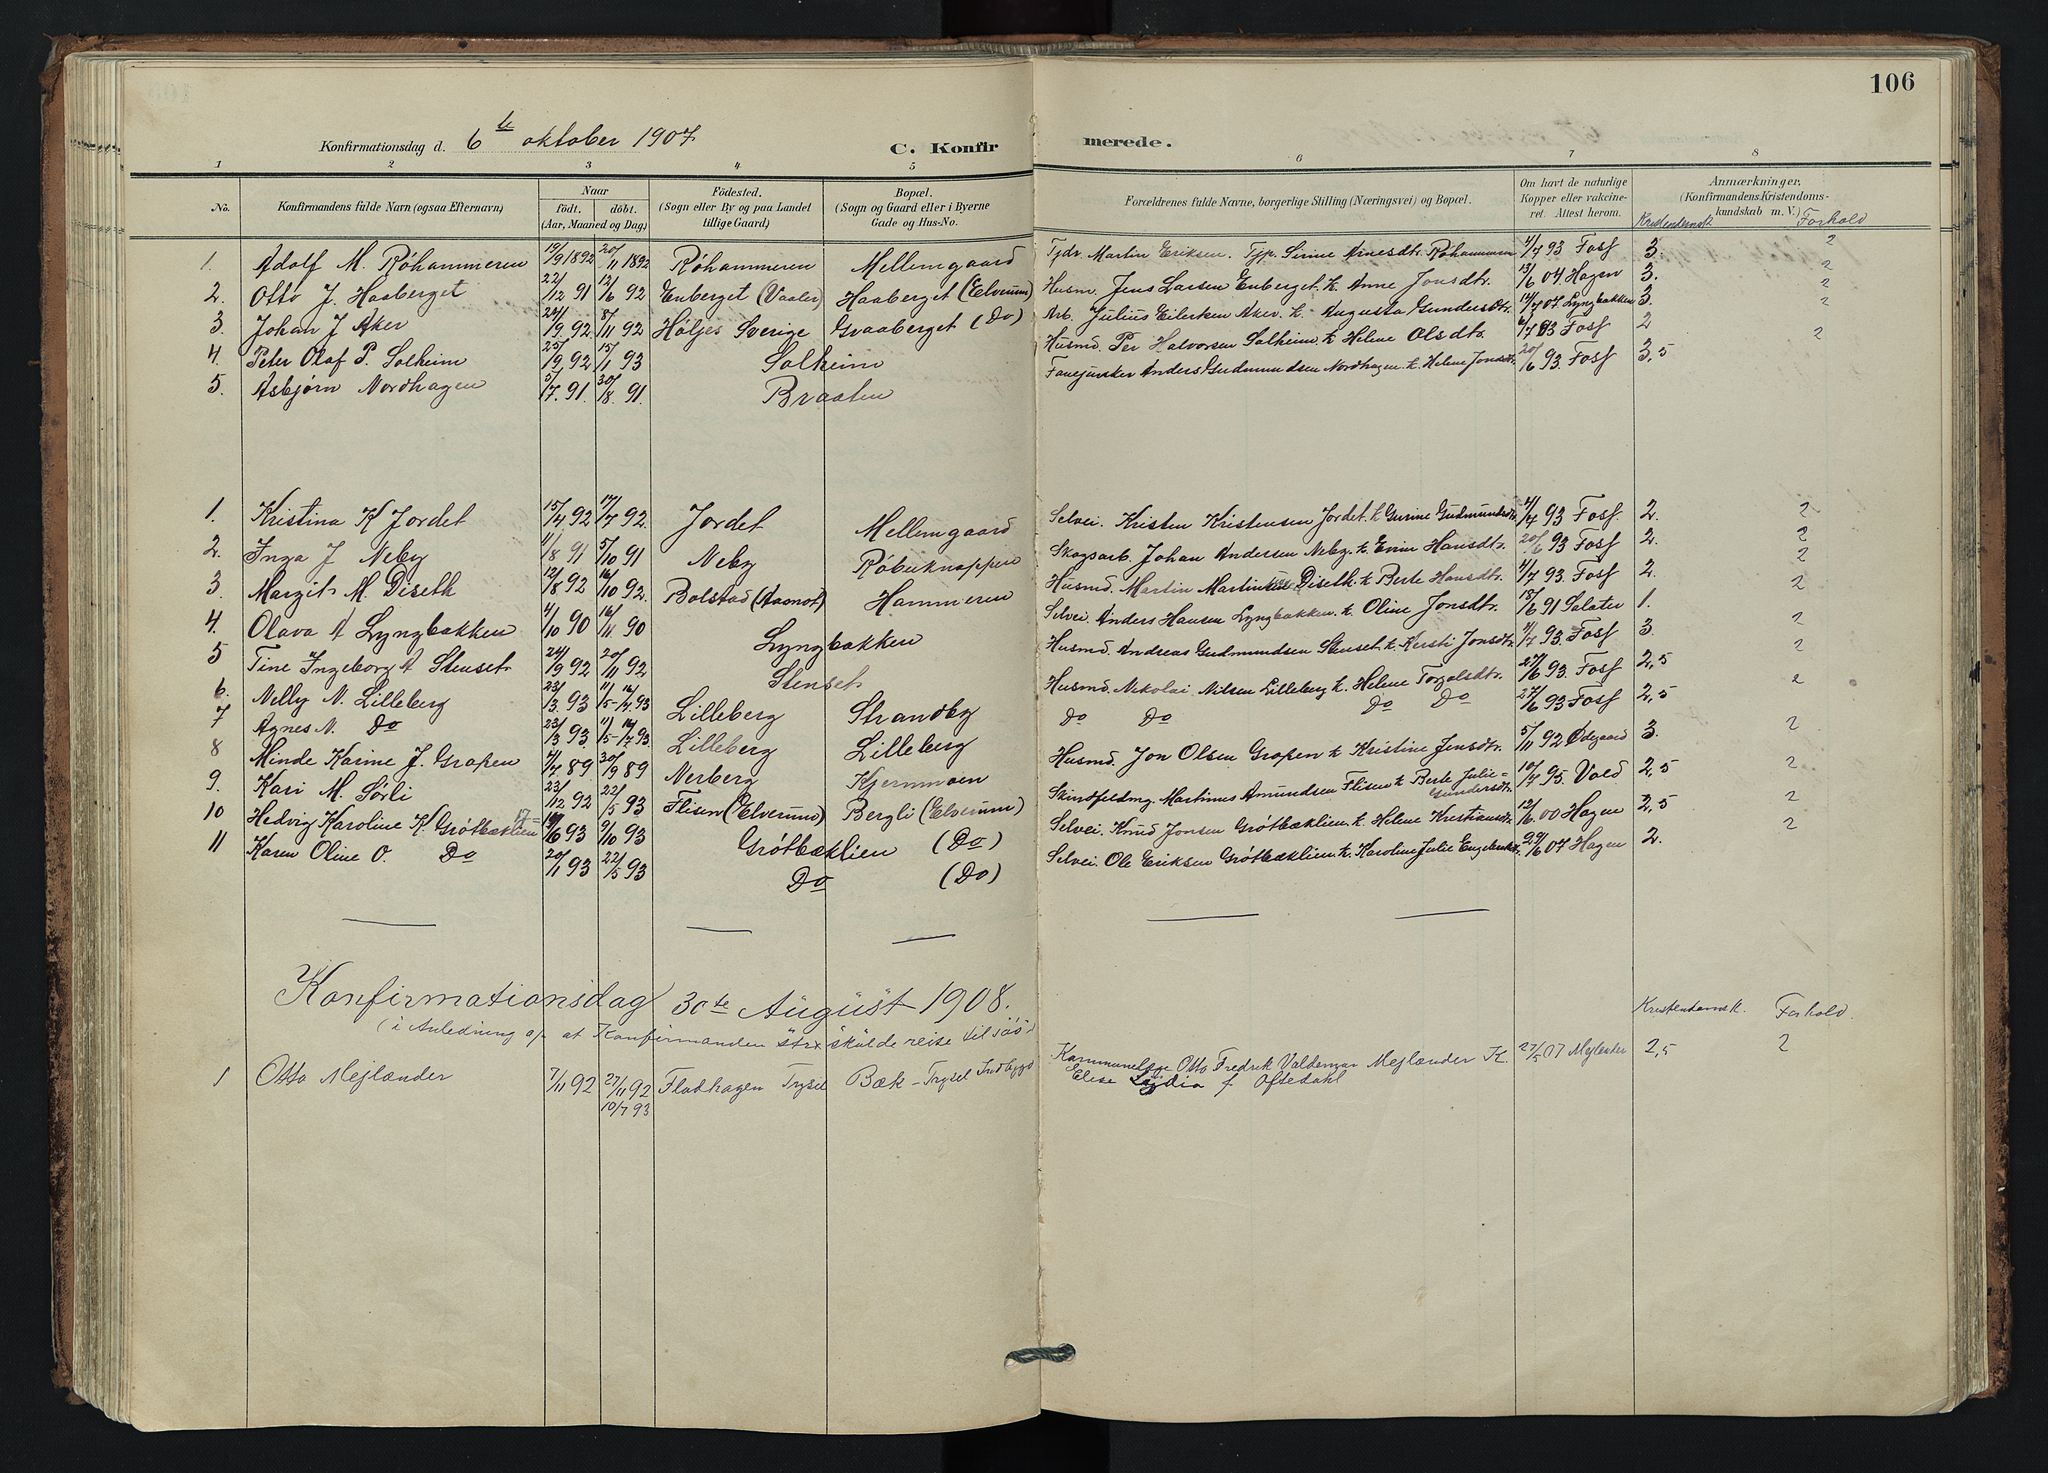 106
Konfirmationsdag d. 6te oktober 1907
C. Konfirmerede.
1 2 3 4 5 6 7 8
No. Konfirmandens fulde Navn (ogsaa Efternavn) Naar født, døbt. (Aar, Maaned og Dag) Fødested. (Sogn eller By og paa Landet tillige Gaard) Bopæl. (Sogn og Gaard eller i Byerne Gade og Hus-No. Forældrenes fulde Navne, borgerlige Stilling (Næringsvei) og Bopæl. Om havt de naturlige Kopper eller vakcineret. Attest herom. Anmærkninger. (Konfirmandens Kristendomskundskab m. V.) Kristendomsk. Forhold
1. Adolf M. Röhammeren 19/9 1892 20/11 1892 Röhammeren Mellemgaard Tjdr. Martin Eriksen. Tjp. Sirine Arnesdtr. Röhammeren 4/7 93 Fosf 3. 2
2. Otto J. Haaberget 22/12 91 12/6 92 Enberget (Vaaler) Haaberget (Elverum) Husm. Jens Larsen Enberget. k. Anne Jonsdtr. 13/6 04 Hagen 3. 2
3. Johan J Aker 24/9 92 8/11 92 Höljes Sverige Graaberget (Do) Arb. Julius Eilertsen Aker. k. Augusta Gundersdtr. 14/7 07 Lyngbakken 3. 2
4. Peter Olaf P. Solheim 25/9 92 15/1 93 Solheim Husmd. Per Halvorsen Solheim k Helene Olsdtr. 4/7 93 Fosf 2 2
5. Asbjørn Nordhagen 5/7. 91. 30/8. 91. Braaten Fanejunker Anders Gudmundsen Nordhagen. k. Helene Jonsdtr. 20/6 93. Fosf 3,5 2
1. Kristina K Jordet 15/4 92 17/7 92. Jordet Mellemgaard Selvei. Kristen Kristensen Jordet. k Gurine Gudmundsdtr. 4/7 93 Fosf. 2. 2
2. Inga J Neby 4/8 91 5/10 91 Neby Röbuknappen Skogsarb. Johan Andersen Neby. k. Eline Hansdtr. 20/6 93 Fosf 2. 2
3. Margit M. Diseth 12/8 92 16/10 92. Bolstad (Aasnot) Hammeren Husmd. Martin Martinsen Diseth. k Berte Hansdtr. 4/7 93. Fosf 2. 2
4. Olava A Lyngbakken 4/10 90 16/11 90 Lyngbakken Selvei. Anders Hansen Lyngbakken. k. Oline Jonsdtr. 15/6 91 Salater 1. 2
5 Tine Ingeborg A Stenset 24/9 92 20/11 92 Stenset Husmd. Andreas Gudmundsen Stenset k Kersti Jonsdtr. 4/7 93. Fosf 3. 2
6. Nelly N. Lilleberg 23/3 93 11/5-16/7 93 Lilleberg Strandby Husmd. Nikolai Nilsen Lilleberg k. Helene Torgalsdtr. 27/6 93. Fosf 2,5 2
7 Agnes N. Do 23/3 93 11/5-16/7 93 Lilleberg Lilleberg Do Do Do Do 27/6 93 Fosf 2,5 2
8 Minde Karine J. Grafen 4/7 89 30/9 89 Nerberg Kjernmoen Husmd. Jon Olsen Grafen k Kristine Jensdtr. 5/11 92 Ødegaard 3. 2
9. Kari M. Sörli 23/12 92 22/5 93 Flisen (Elverum) Bergli (Elverum) Skindfeldmg. Martinus Amundsen Flisen k Berte Julie Gundersdtr. 10/7 95. Vold 2,5 2
10 Hedvig Karoline K. Grötbæklien 17/6 93 9/10 93 Grötbæklien (Do) Selvei. Knud Jonsen Grötbæklien. k. Helene Kristiansdtr. 12/6. 00 Hagen 2,5 2
11 Karen Oline O. Do 20/1 93 22/5 93 Do (Do) Selvei. Ole Eriksen Grötbæklien. k. Karoline Julie Engebretsdtr. 29/6 07 Hagen 2. 2
Konfirmationsdag 30te August 1908.
Kristendomsk. Forhold.
(i Anledning af at Konfirmanden skulde reise til sjös)
1 Otto Mejlænder 7/11 92 27/11 92 Flodhagen Trysil Bæk - Trysil Indbygd Kommunelæge Otto Fredrik Valdemar Mejlænder K. 27/5 07 Mejlænder 2,5 2
10/7 93 Elise Lydia f Oftedahl